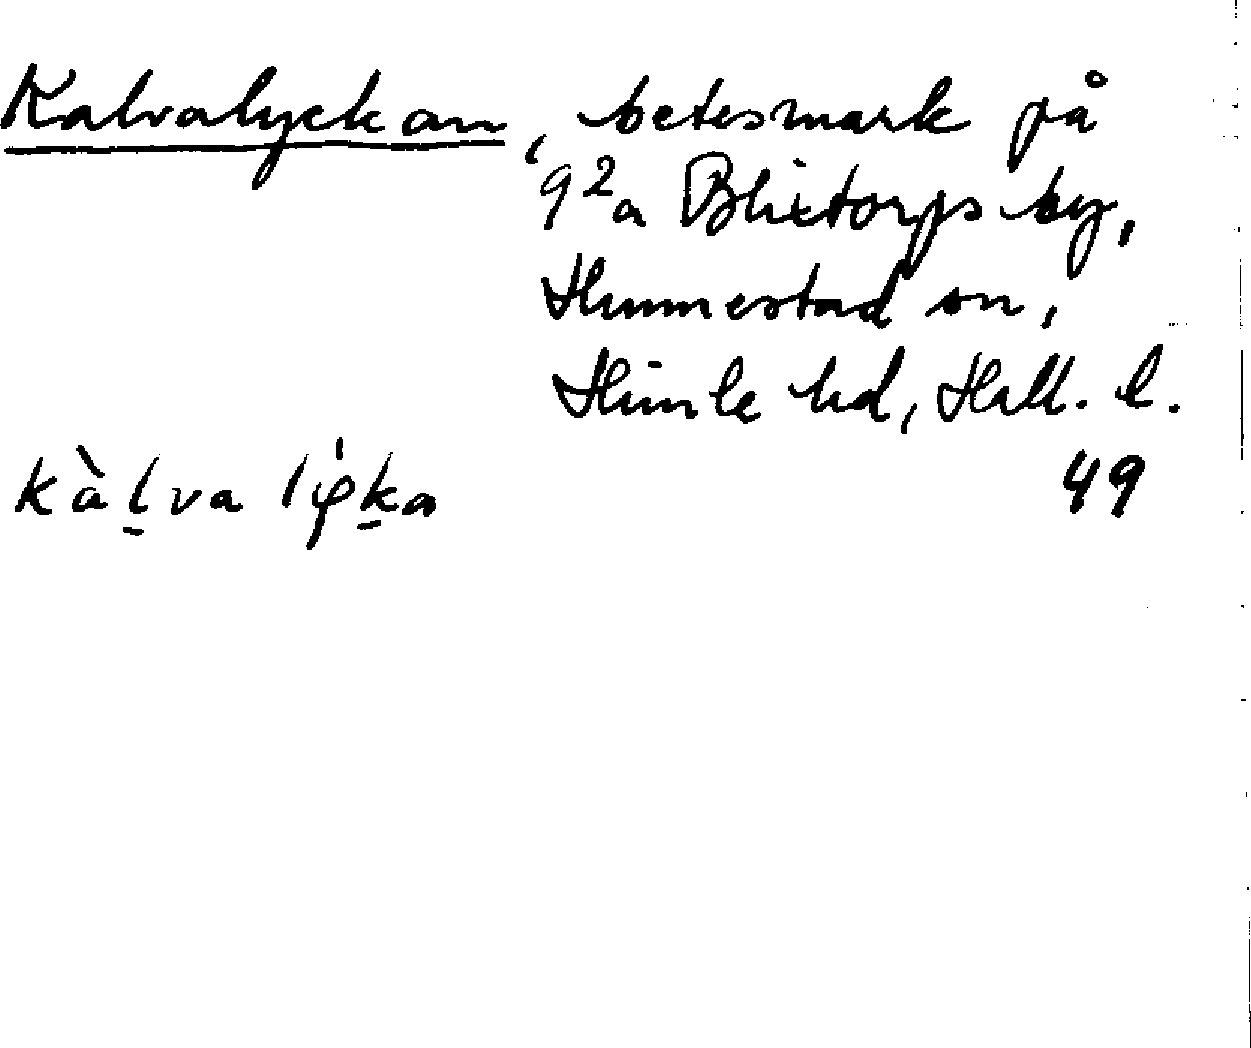 Kalvalyckan, betesmark på
9²a Blixtorps by,
Hunnestad sn,
Himle hd, Hall. l.
kàḻva lφ̍ḵa 49